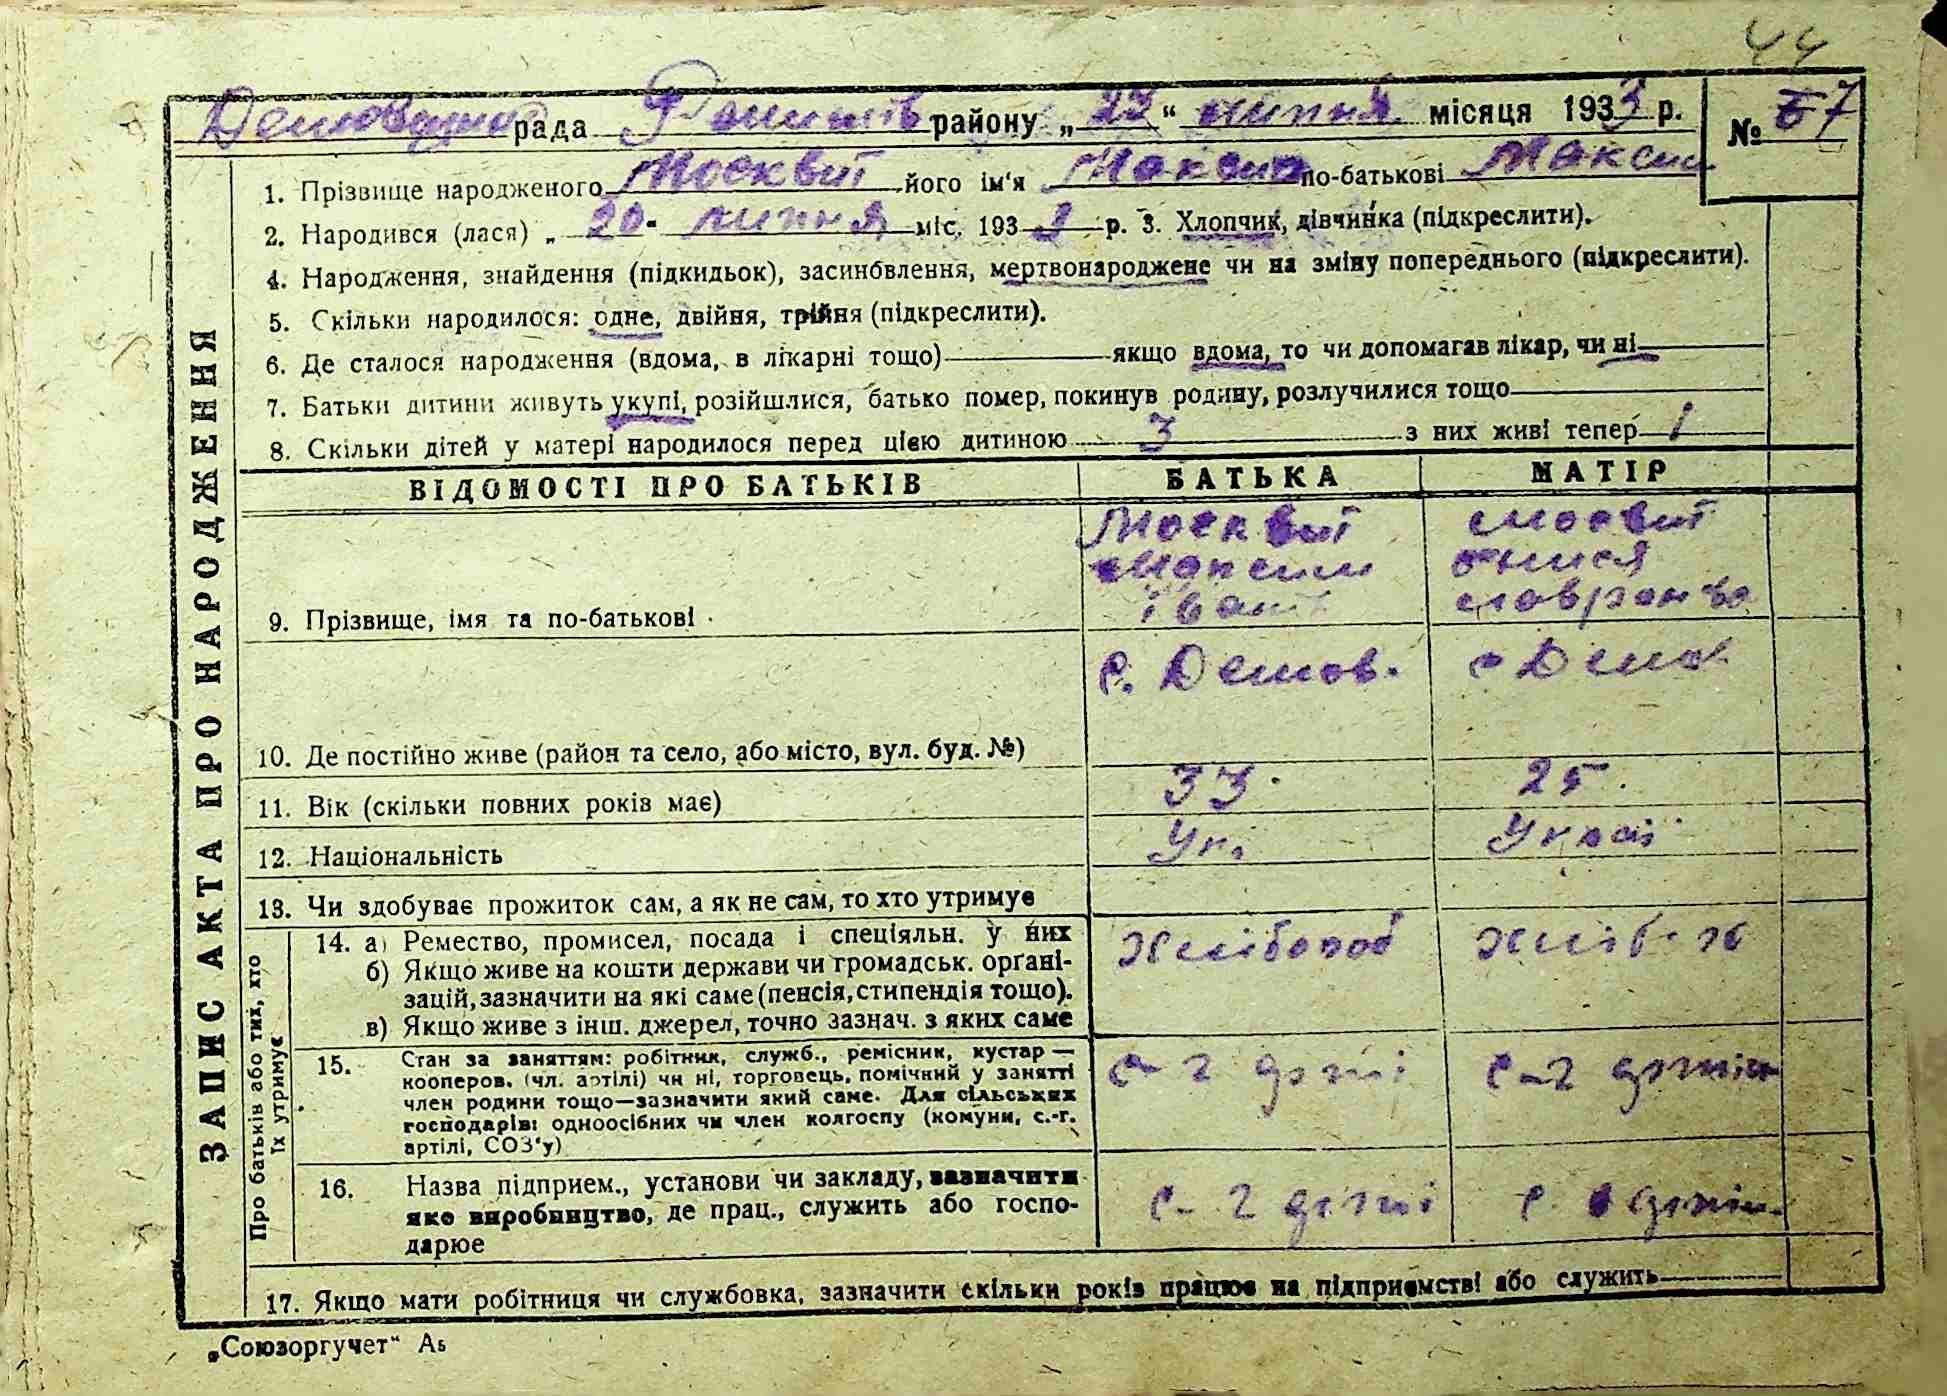 44
рада району „ 23 “ липня місяця 1933 р. № 67
1. Прізвище народженого Москвит його ім'я Максим по-батькові Максим
2. Народився (лася) „ 20 липня міс. 193 р. 3. Хлопчик, дівчинка (підкреслити).
4. Народження, знайдення (підкидьок), засиновлення, мертвонароджене чи на зміну попереднього (підкреслити).
5. Скільки народилося: одне, двійня, трійня (підкреслити).
6. Де сталося народження (вдома, в лікарні тощо) якщо вдома, то чи допомагав лікар, чи ні
7. Батьки дитини живуть укупі, розійшлися, батько помер, покинув родину, розлучилися тощо
8. Скільки дітей у матері народилося перед цією дитиною 3 з них живі тепер 1
ВІДОМОСТІ ПРО БАТЬКІВ БАТЬКА МАТІР
Москвит Москвит
Максим Онися
Іван
9. Прізвище, імя та по-батькові
с. Демов. с Демов
10. Де постійно живе (район та село, або місто, вул. буд. №)
11. Вік (скільки повних років має) 33. 25.
12. Національність Ук. Украї
13. Чи здобуває прожиток сам, а як не сам, то хто утримує
14. а) Ремество, промисел, посада і спеціяльн. у них хлібороб
б) Якщо живе на кошти держави чи громадськ. орґані-
зацій, зазначити на які саме (пенсія, стипендія тощо).
в) Якщо живе з інш. джерел, точно зазнач. з яких саме
15. Стан за заняттям: робітник, служб., ремісник, кустар —
кооперов. (чл. артілі) чи ні, торговець, помічний у занятті
член родини тощо—зазначити який саме. Для сільських
господарів: одноосібних чи член колгоспу (комуни, с.-г.
артілі, СОЗ'у)
16. Назва підприєм., установи чи закладу, зазначити
яке виробництво, де прац., служить або госпо-
дарює
17. Якщо мати робітниця чи службовка, зазначити скільки років працює на підприємстві або служить
ЗАПИС АКТА ПРО НАРОДЖЕННЯ
Про батьків або тих, хто
їх утримує
„Союзоргучет“ А5